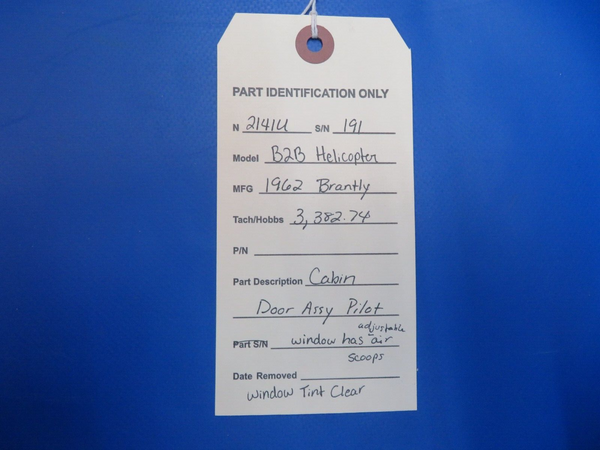 PART IDENTIFICATION ONLY
N 2141U S/N 191
Model B2B Helicopter
MFG 1962 Brantly
Tach/Hobbs 3,382.74
P/N
Part Description Cabin
Door Assy Pilot
adjustable
Part S/N window has air
scoops
Date Removed
window Tint Clear